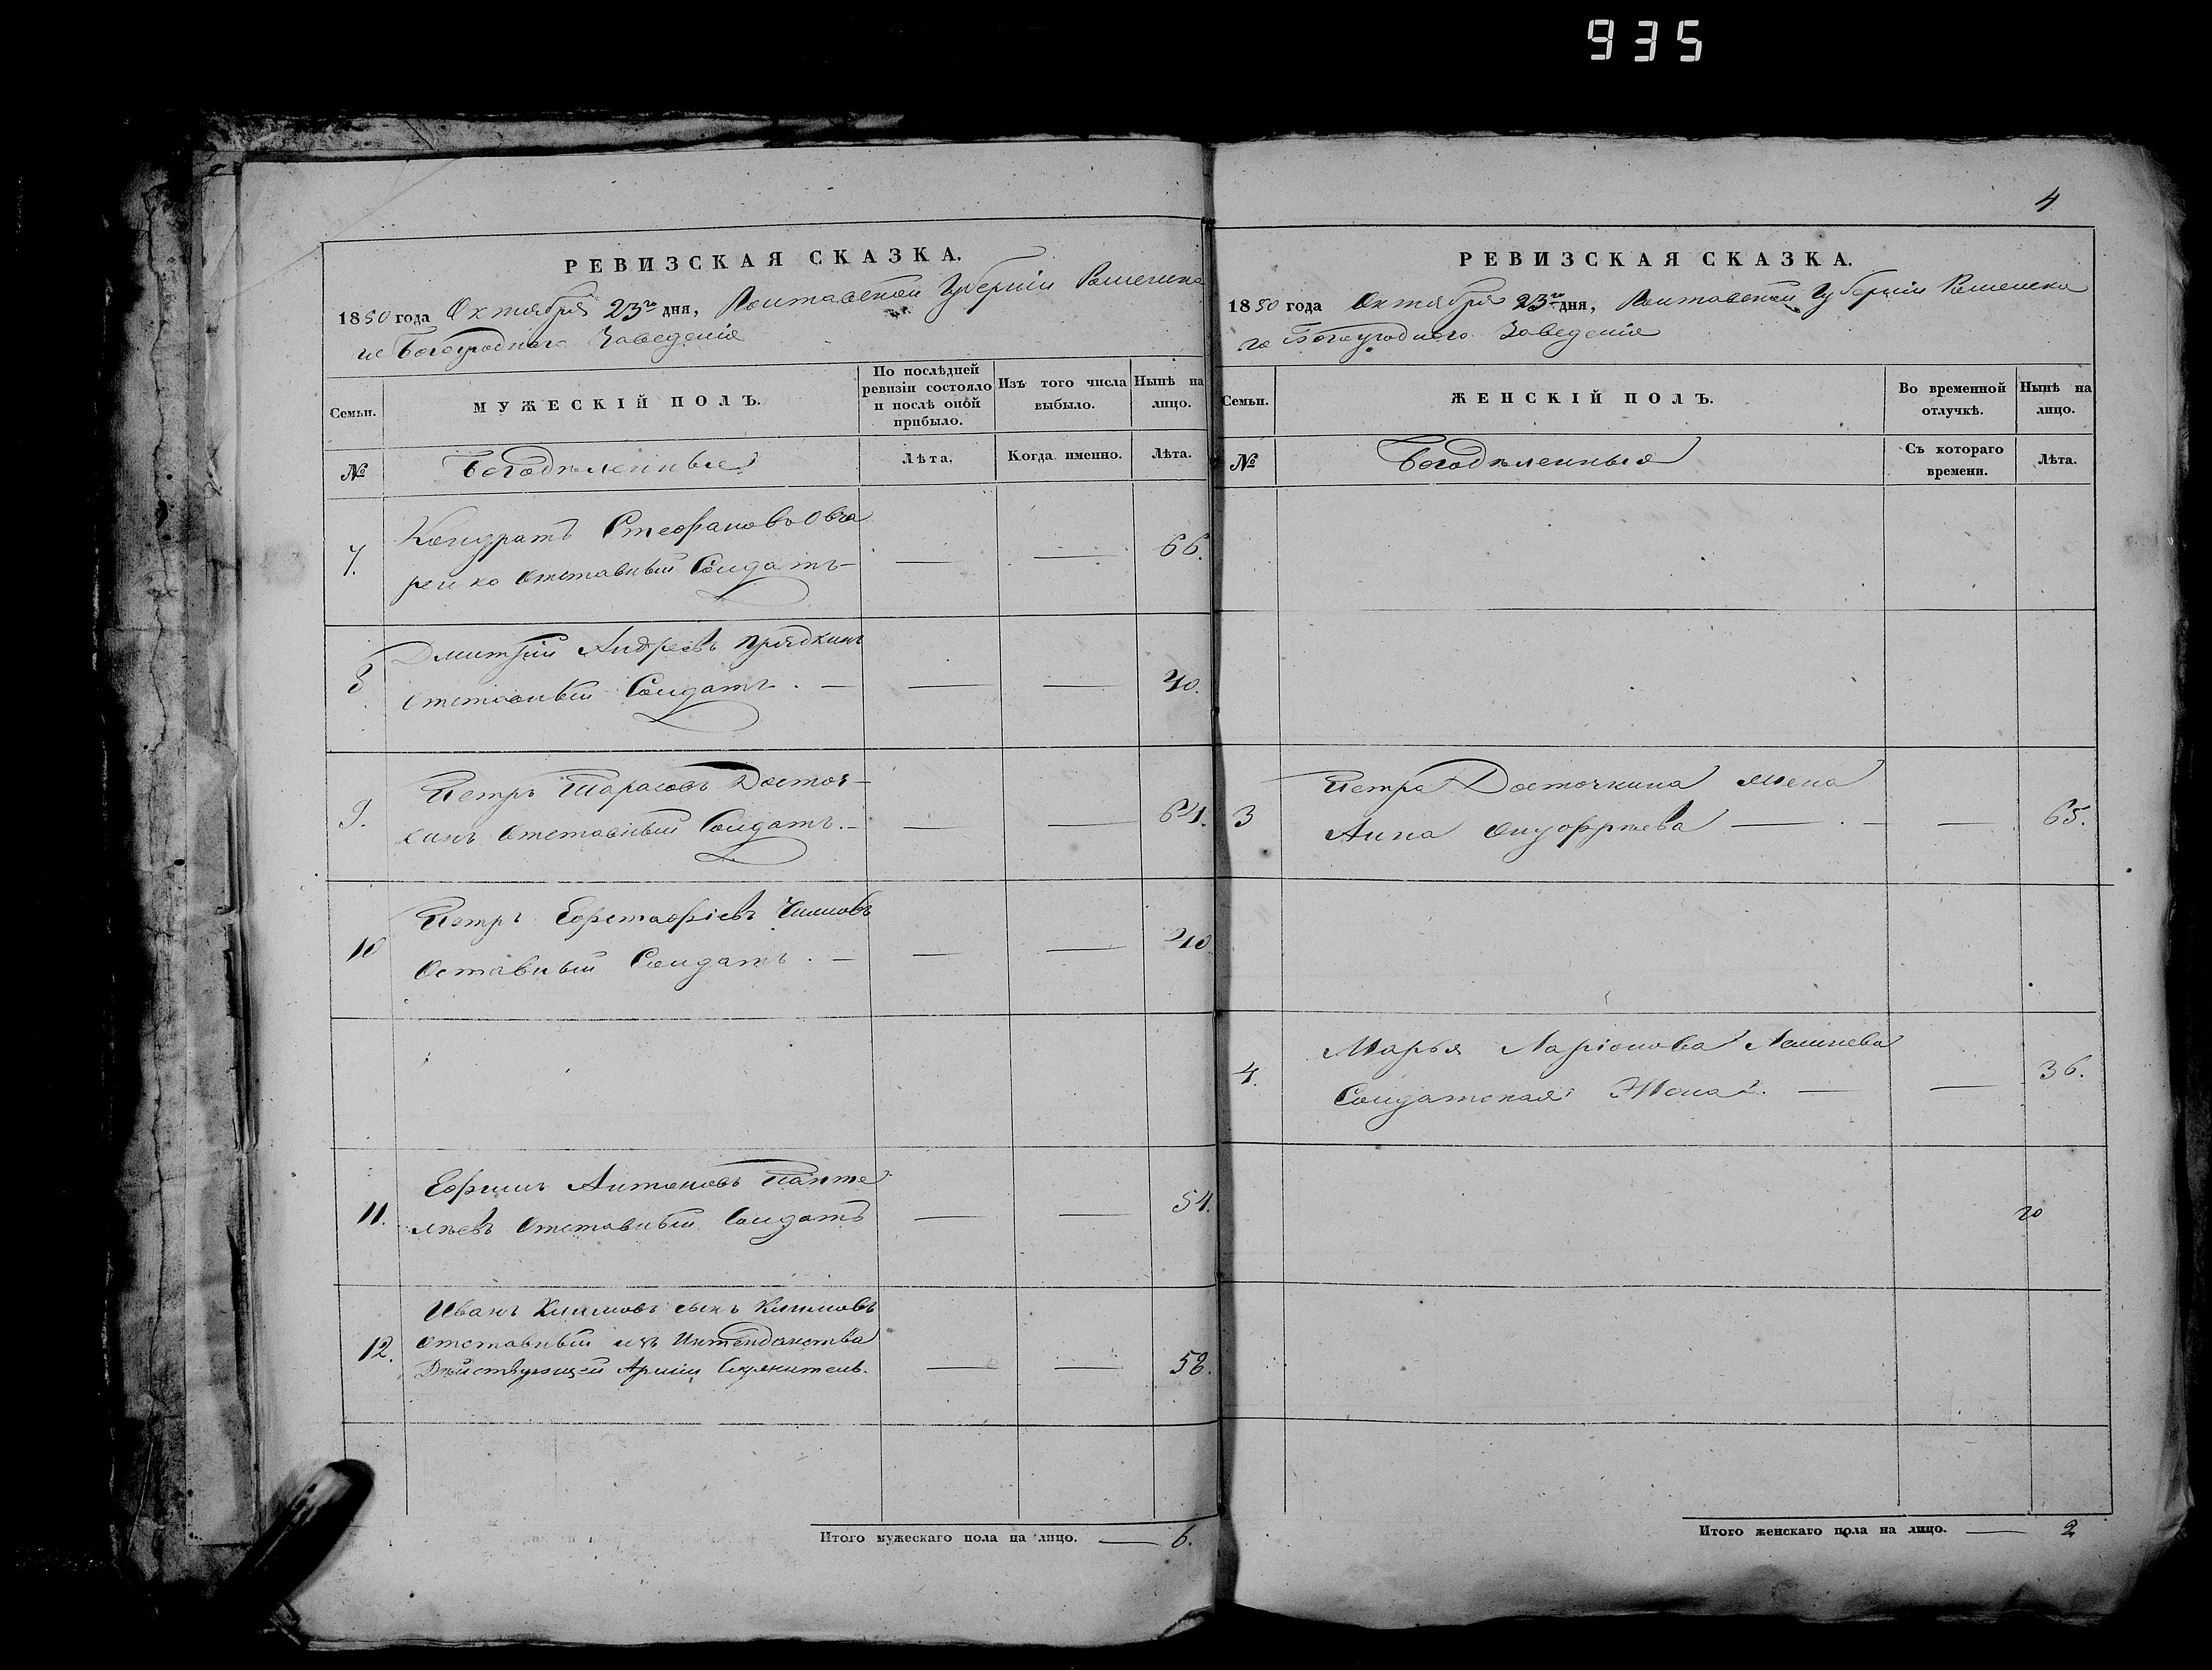 935
4
РЕВИЗСКАЯ СКАЗКА.
1850 года Октября 23го дня, Полтавской Губерніи Роменска
го Богоугоднаго Заведенія
Семьи.
МУЖЕСКІЙ ПОЛЪ.
По послѣдней ревизіи состояло и послѣ оной прибыло.
Изъ того числа выбыло.
Нынѣ на лицо.
№
Богодѣленные
Лѣта.
Когда именно.
Лѣта.
7.
Кондратъ Стефановъ Овча
ренко Отставный Солдатъ
66.
8
Дмитрій Андреевъ Прядкинъ
отставный Солдатъ.
40.
9.
Петръ Тарасовъ Досточ-
кинъ Отставный Солдатъ.
64.
10
Петръ Ефстафіевъ
Оставный Солдатъ.
40
11.
Ефимъ Антоновъ Панте
лѣевъ Отставный Солдатъ
54.
12.
Иванъ Климовъ сынъ Климовъ
отставный изъ Интендантства
Дѣйствующей Арміи Служитель.
58.
Итого мужескаго пола на лицо. — 6.
РЕВИЗСКАЯ СКАЗКА.
1850 года Октября 23го дня, Полтавской Губерніи Роменска
го Богоугоднаго Заведенія
Семьи.
ЖЕНСКІЙ ПОЛЪ.
Во временной отлучкѣ.
Нынѣ на лицо.
№
Богодѣленныя
Съ котораго времени.
Лѣта.
3
Петра Досточкина жена
Анна Онуфріева
65.
4.
Марья Ларіонова
Солдатская Жена.
36.
Итого женскаго пола на лицо. — 2